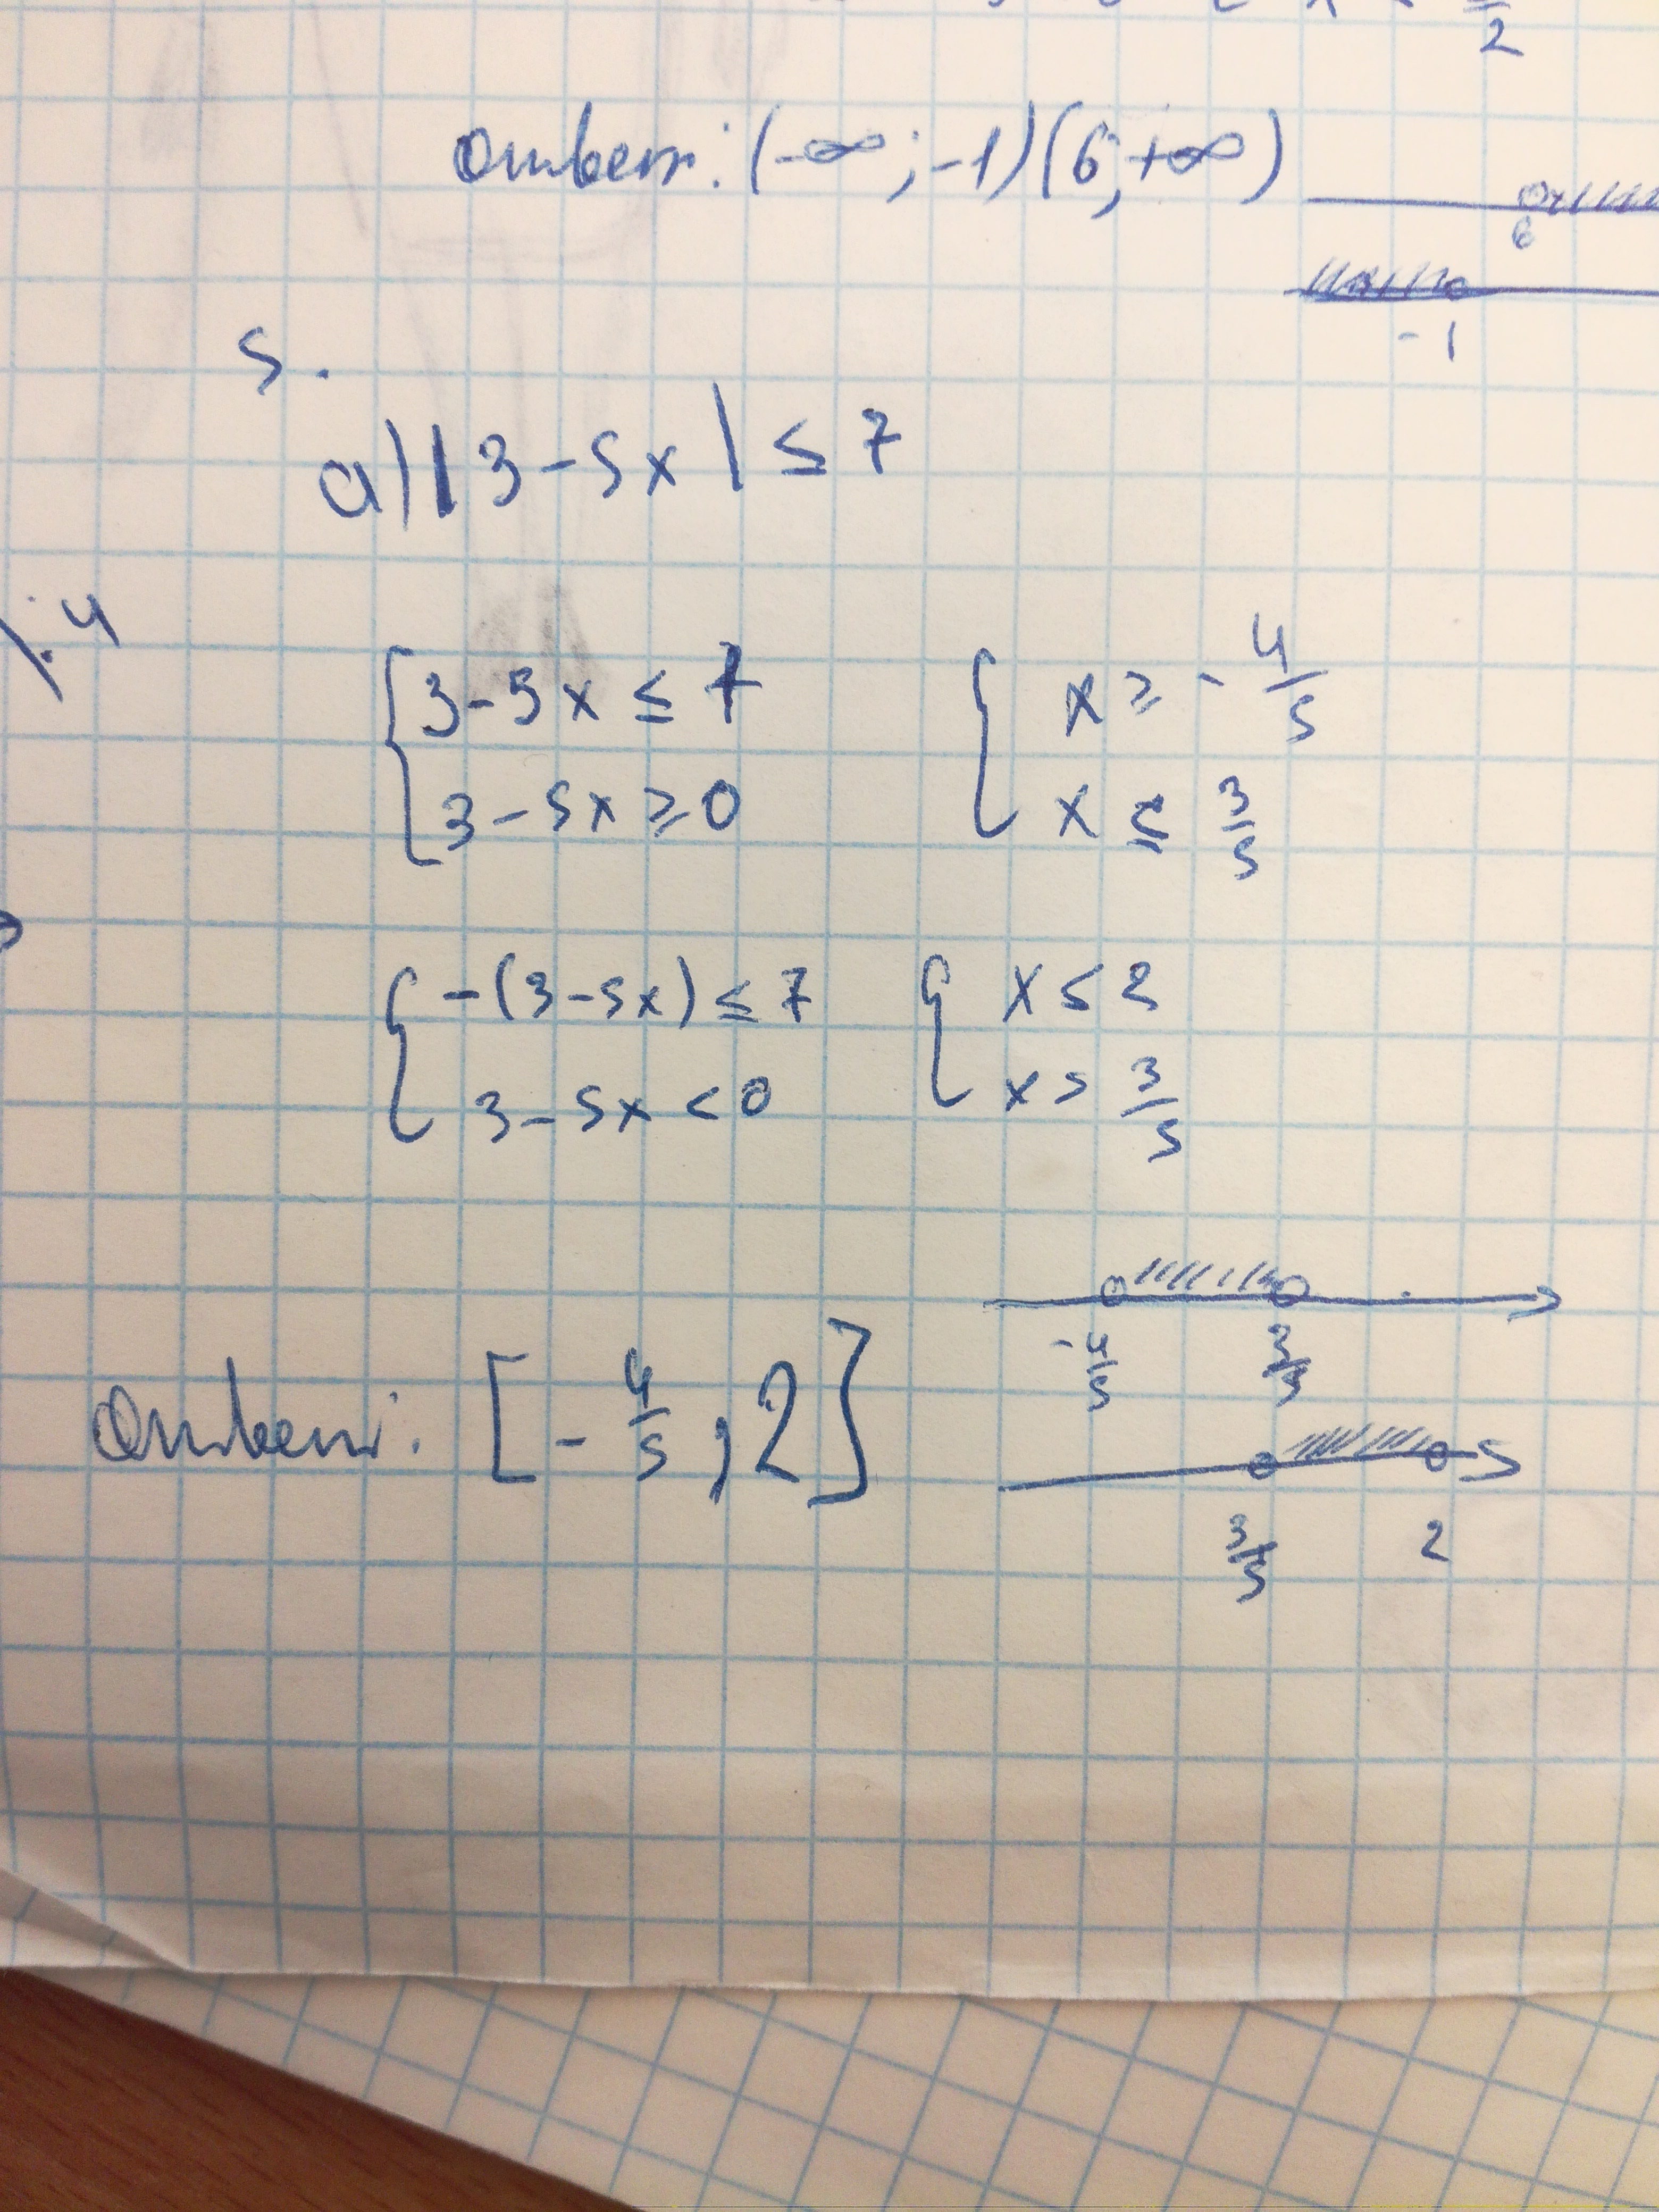 2
Ответ: (-∞; -1)(6; +∞)
6
-1
5.
а) |3-5x| ≤ 7
4
{ 3-5x ≤ 7 { x ≥ -4/5
3-5x ≥ 0 x ≤ 3/5
{ -(3-5x) ≤ 7 { x ≤ 2
3-5x < 0 x > 3/5
-4/5 3/5
Ответ: [-4/5, 2]
3/5 2